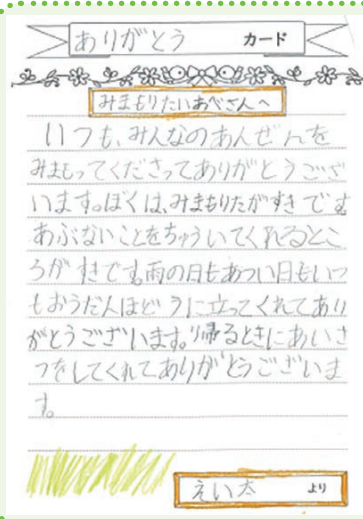 ありがとう カード
みまもりたいあべさんへ
いつも、みんなのあんぜんを
みまもってくださってありがとうござ
います。ぼくは、みまもりたがすきです。
あぶないことをちゅういてくれるとこ
ろがすきです。雨の日もあつい日もいつ
もおうだんほどうに立ってくれてあり
がとうございます。帰るときにあいさ
つをしてくれてありがとうございま
す。
えい太 より